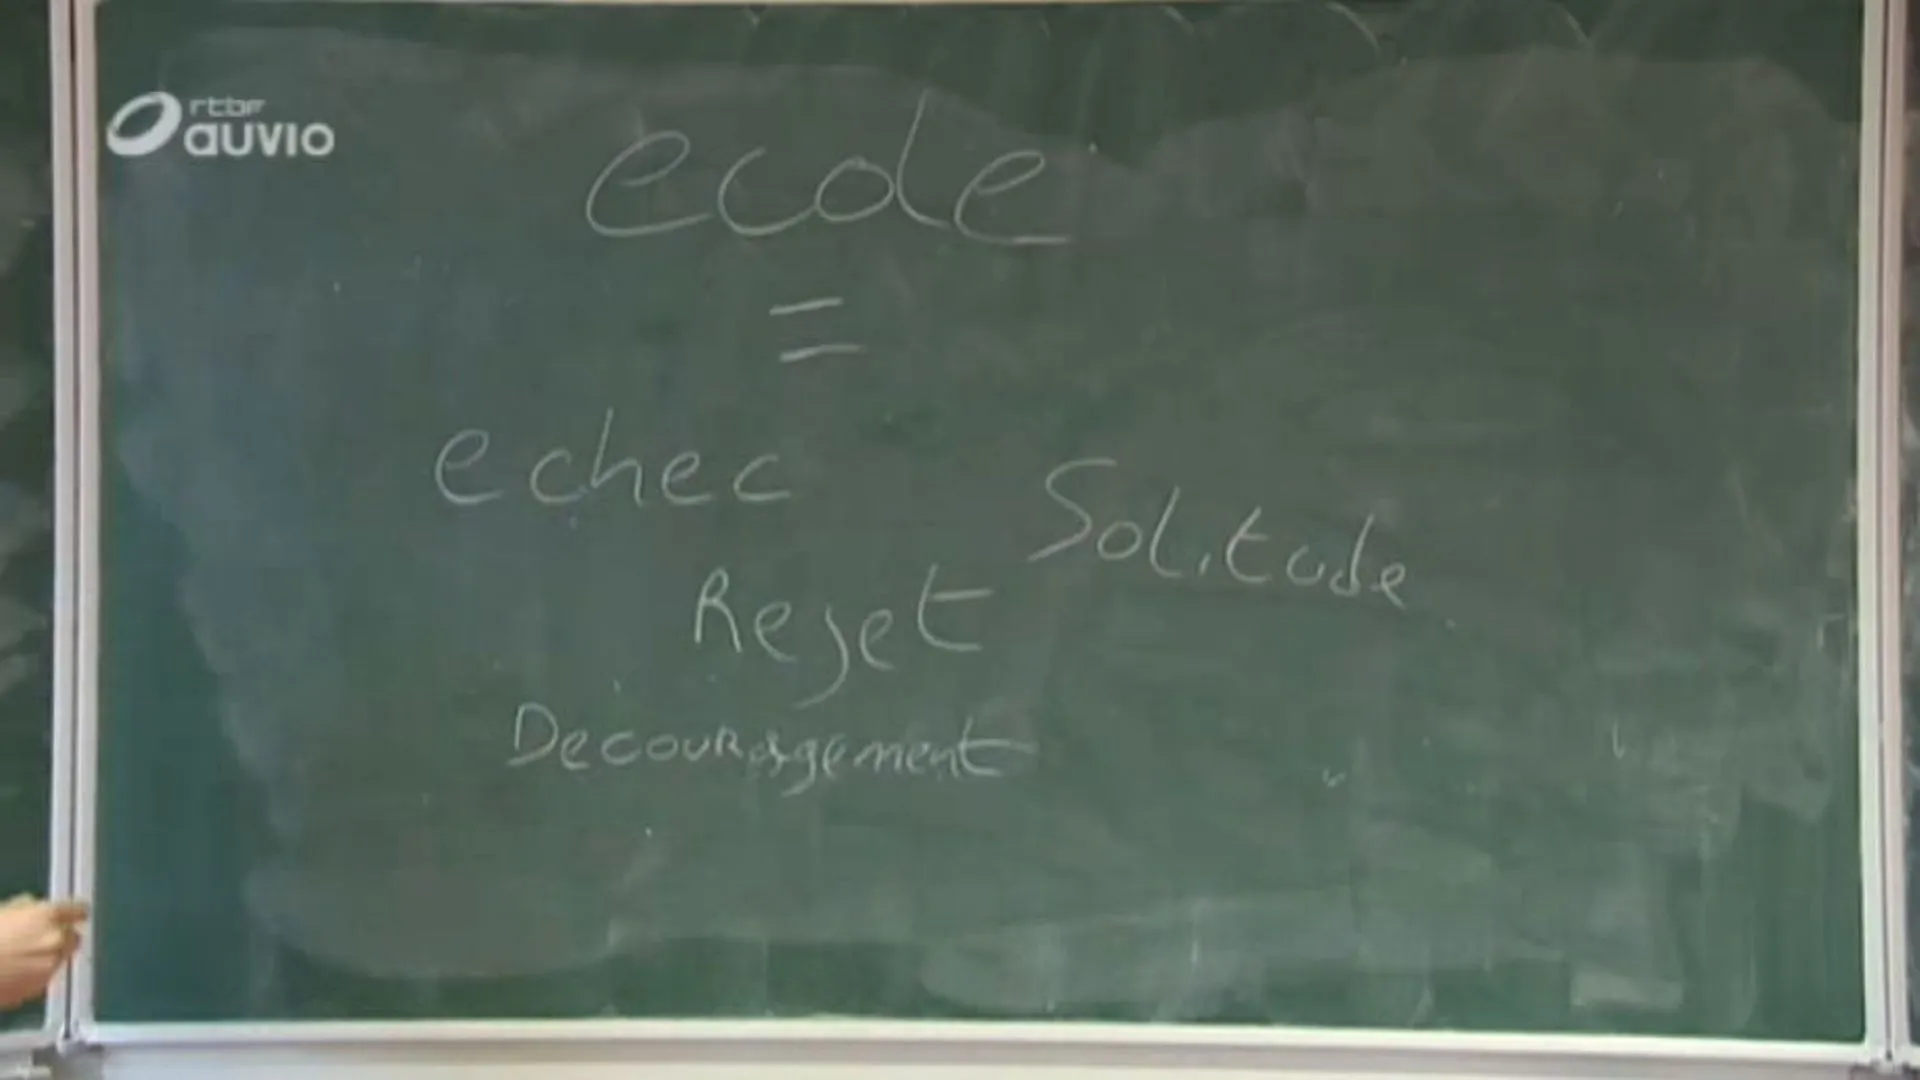 rtbf
auvio
ecole
=
echec
Solitude
Rejet
Decouragement